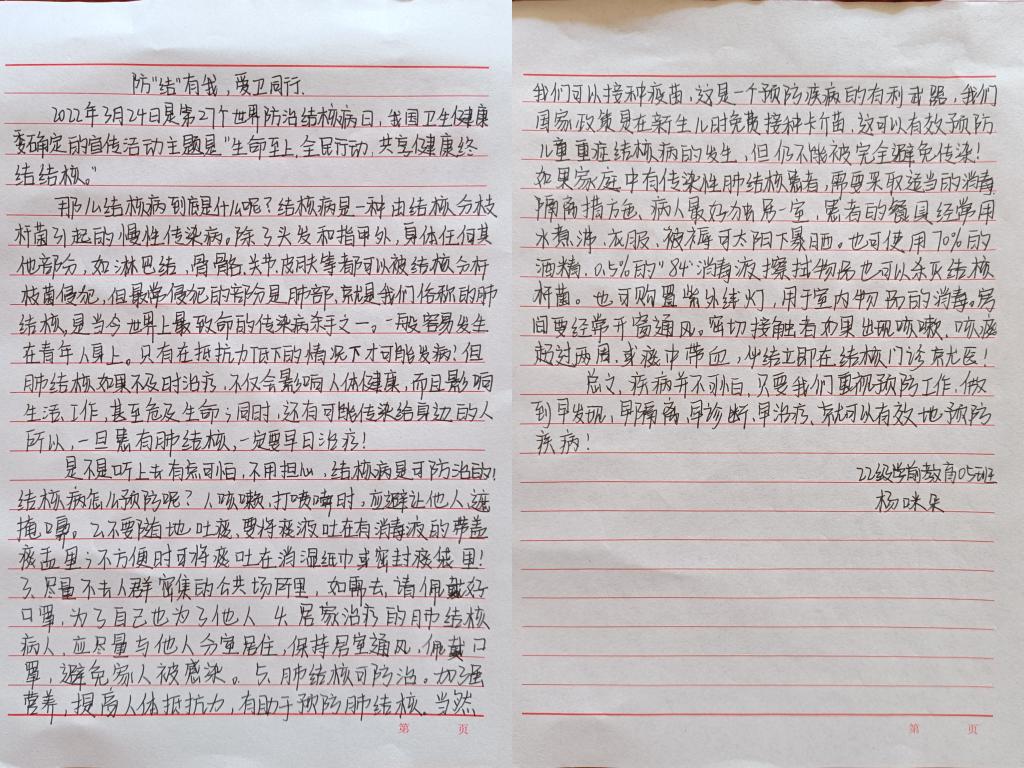 防"结"有我，爱卫同行.
2022年3月24日是第27个世界防治结核病日，我国卫生健康
委确定的宣传活动主题是"生命至上，全民行动，共享健康终
结结核。"
那么结核病到底是什么呢？结核病是一种由结核分枝
杆菌引起的慢性传染病。除了头发和指甲外，身体任何其
他部分，如淋巴结、骨骼、关节、皮肤等都可以被结核分杆
枝菌侵犯，但最常侵犯的部分是肺部，就是我们俗称的肺
结核。是当今世界上最致命的传染病杀手之一。一般容易发生
在青年人身上。只有在抵抗力低下的情况下才可能发病！但
肺结核如果不及时治疗，不仅会影响人体健康，而且影响
生活、工作，甚至危及生命；同时，还有可能传染给身边的人
所以，一旦患有肺结核，一定要早日治疗！
是不是听上去有点可怕，不用担心，结核病是可防治的！
结核病怎么预防呢？人咳嗽、打喷嚏时，应避让他人、遮
掩口鼻。2、不要随地吐痰，要将痰液吐在有消毒液的带盖
痰盂里；不方便时可将痰吐在消湿纸巾或密封痰袋里！
3、尽量不去人群密集的公共场所里，如需去，请佩戴好
口罩，为了自己也为了他人 4、居家治疗的肺结核
病人，应尽量与他人分室居住，保持居室通风，佩戴口
罩，避免家人被感染。5、肺结核可防治。加强
营养，提高人体抵抗力，有助于预防肺结核。当然
第 页
我们可以接种疫苗，这是一个预防疾病的有利武器，我们
国家政策是在新生儿时免费接种卡介苗，这可以有效预防
儿童重症结核病的发生，但仍不能被完全避免传染！
如果家庭中有传染性肺结核患者，需要采取适当的消毒
隔离措施，病人最好独居一室，患者的餐具经常用
水煮沸，衣服、被褥可太阳下暴晒。也可使用70%的
酒精，0.5%的"84"消毒液擦拭物品也可以杀灭结核
杆菌。也可购置紫外线灯，用于室内物品的消毒。房
间要经常开窗通风。密切接触者如果出现咳嗽、咳痰
超过两周，或痰中带血，少结立即在结核门诊就医！
总之，疾病并不可怕，只要我们重视预防工作，做
到早发现，早隔离，早诊断，早治疗，就可以有效地预防
疾病！
22级学前教育05班
杨咪朵
第 页